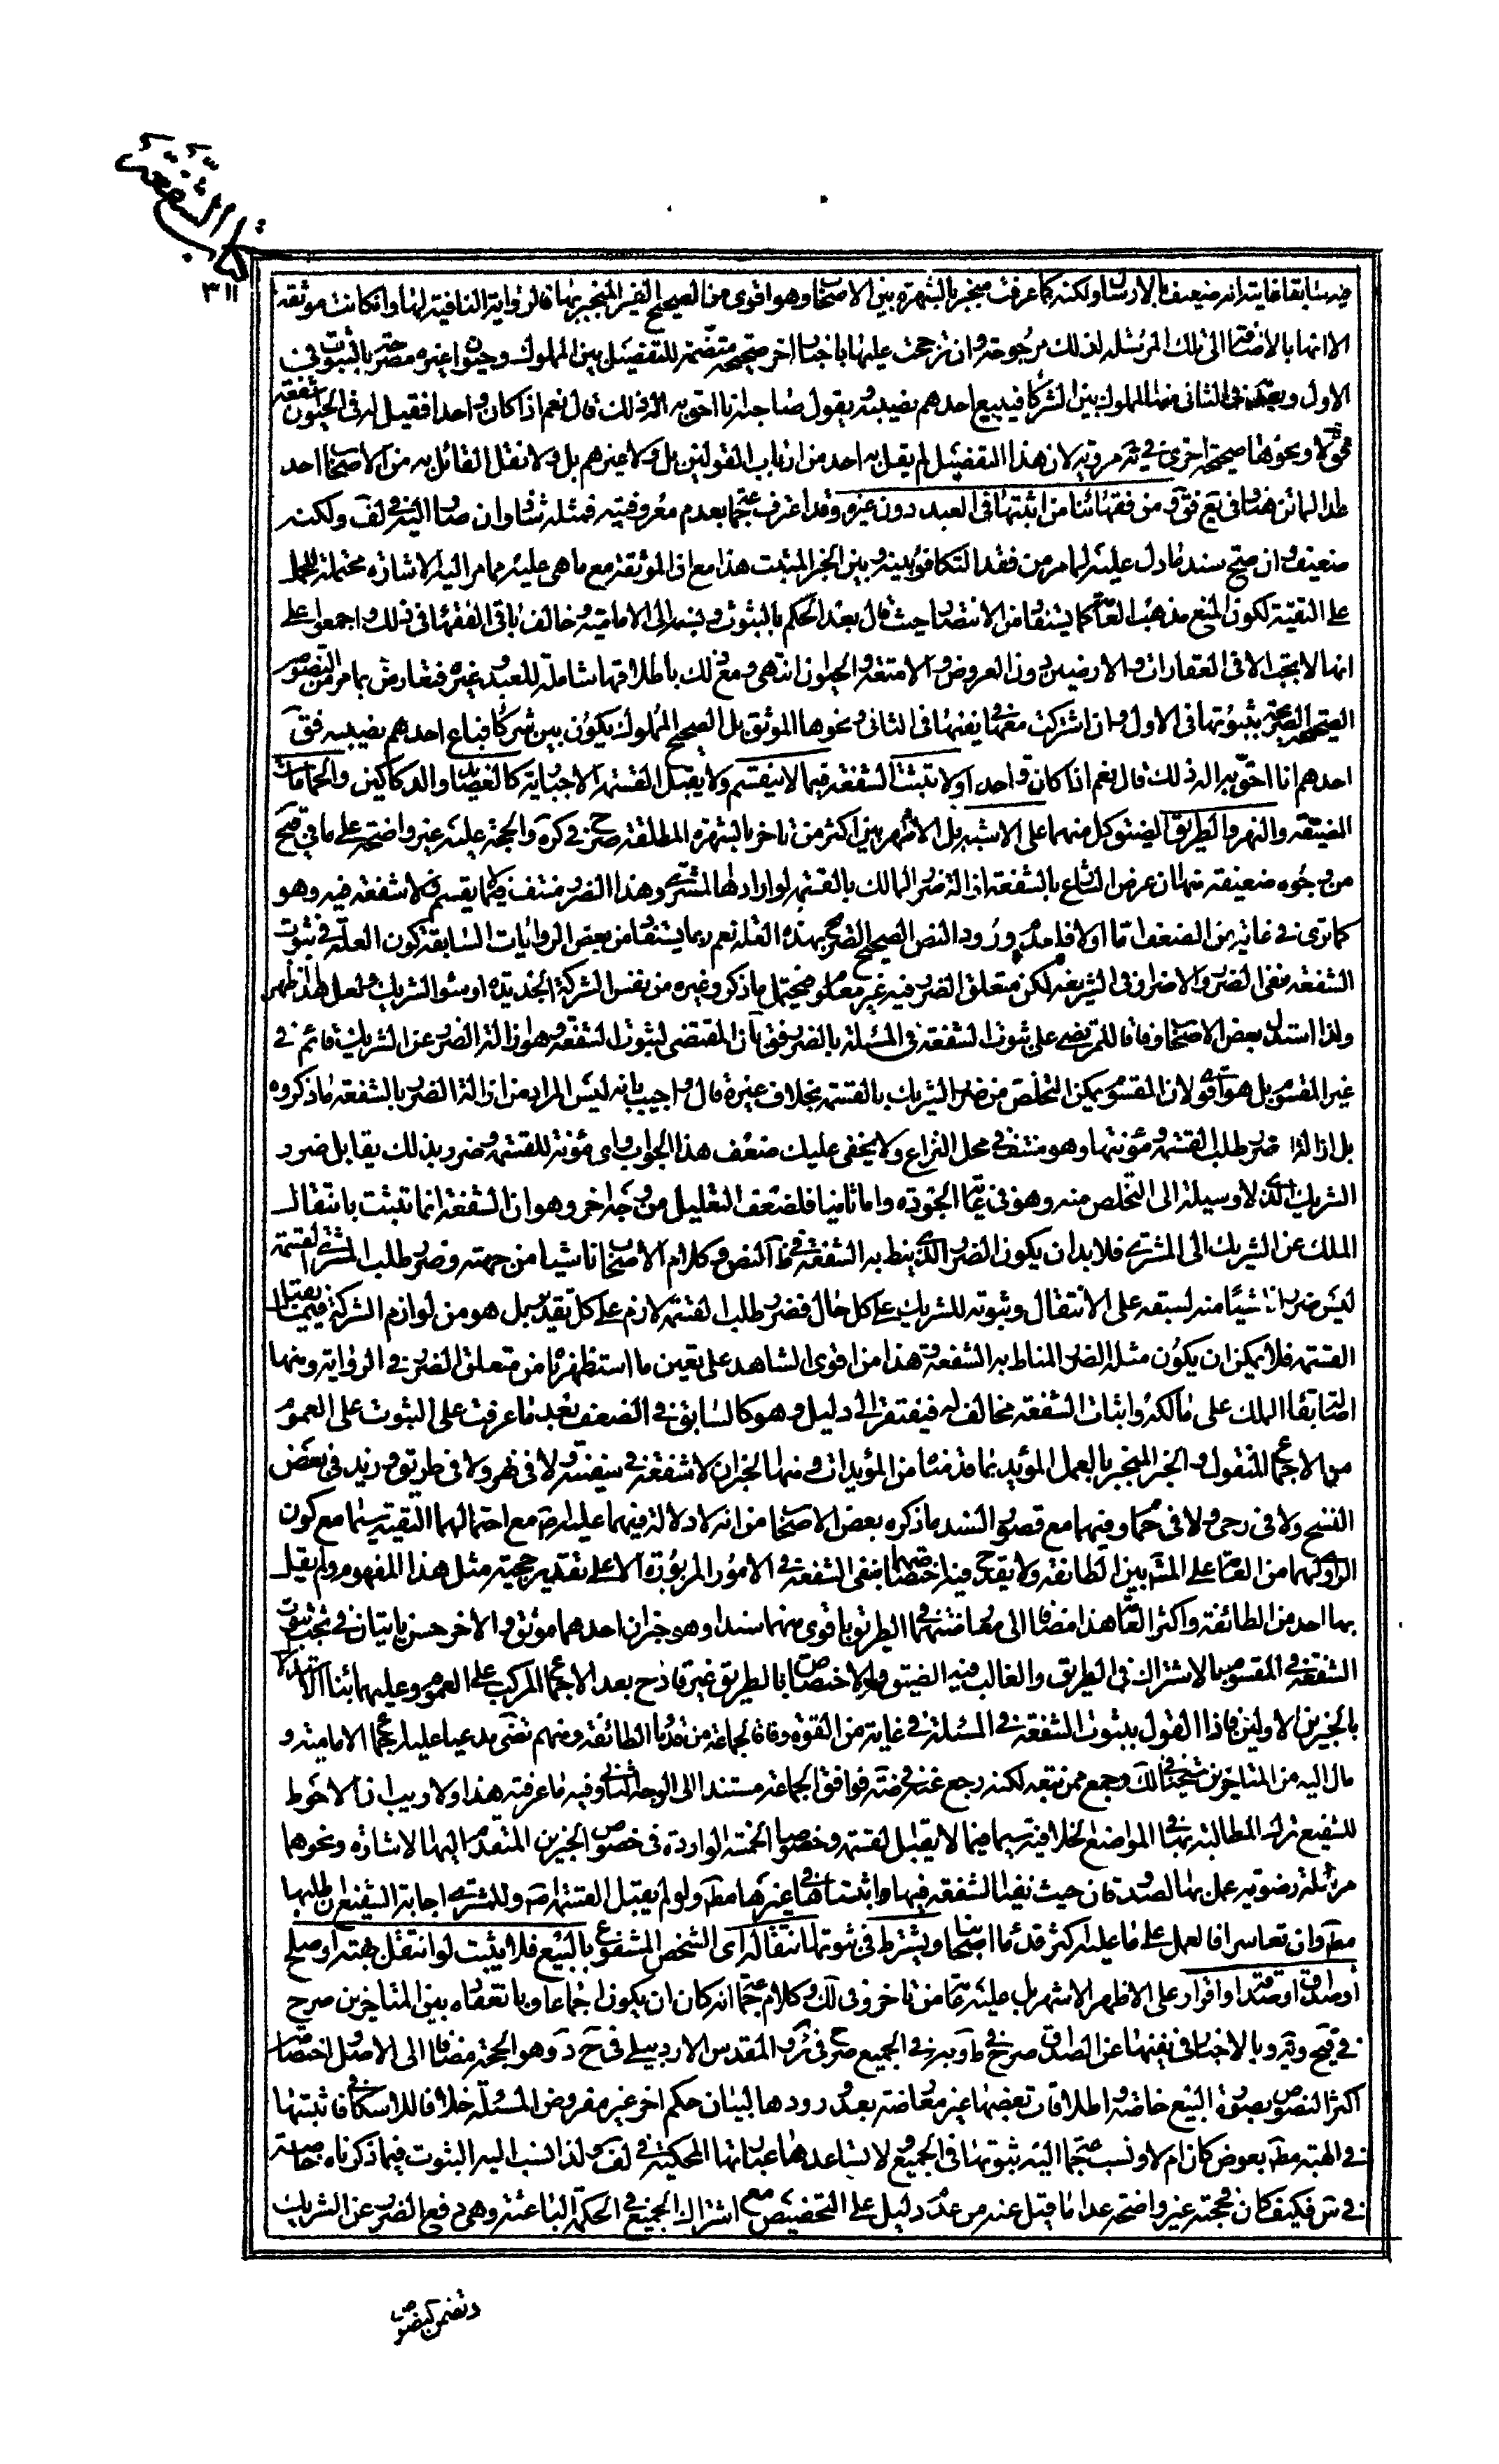 كتاب الشفعة
٣١١
فيه سابقا غايته انه ضعيف بالارسال ولكنه كما عرفت منجبر بالشهرة بين الاصحاب وهو اقوى من الصحيح الغير المنجبر بها فالرواية النافية لها وان كانت موثقة
الا انها بالاضافة الى تلك المرسلة لذلك مرجوحة وان ترجحت عليها باخبار اخر صحيحة متضمنة للتفصيل بين المملوك وحيوان غيره مصرحة بالثبوت في
الاول وبعدمه في الثاني منها المملوك بين الشركاء فيبيع احدهم نصيبه ويقول صاحبه انا احق به اله ذلك قال نعم اذا كان واحدا فقيل له في الحيوان شفعة
فق لا ونحوها صحيحة اخرى في ثه مروية لان هذا التفصيل لم يقل به احد من ارباب القولين بل ولا غيرهم بل ولا نقل القائل به من الاصحاب احد
عدا الماتن هنا وفي يع فق ومن فقهائنا من اثبتها في العبد دون غيره وقد اعترف جماعة بعدم معروفيته فمثله شاذ وان صار اليه في لف ولكنه
ضعيف وان صح سند ما دل عليه لما مر من فقد التكافؤ بينه وبين الخبر المثبت هذا مع ان الموثقة مع ما هي عليه مما مر اليه الاشارة محتملة للحمل
على التقية لكون المنع مذهب العامة كما يستفاد من الانتصار حيث قال بعد الحكم بالثبوت ونسبته الى الامامية وخالف باقي الفقهاء في ذلك واجمعوا على
انها لا تجب الا في العقارات والارضين دون العروض والامتعة والحيوان انتهى ومع ذلك باطلاقها شاملة للعبد وغيره فتعارض بما مر من النصوص
الصحيحة الصريحة بثبوتها في الاول وان اشتركت معها بنفيها في الثاني ونحوها الموثق بل الصحيح المملوك يكون بين شركاء فباع احدهم نصيبه فق
احدهم انا احق به اله ذلك قال نعم اذا كان واحدا ولا تثبت الشفعة فيما لا ينقسم ولا يقبل القسمة الاجبارية كالعضايد والدكاكين والحمامات
الضيقة والنهر والطريق الضيق كل منهما على الاشبه بل الاظهر بين اكثر من تاخر بالشهرة المطلقة صرح في كره والحجة عليه غير واضحة على ما في صح
من وجوه ضعيفة منها ان عرض الشارع بالشفعة ازالة ضرر المالك بالقسمة لو ارادها المشتري وهذا الضرر منتف فيما لا يقسم فلا شفعة فيه وهو
كما ترى في غاية من الضعف اما اولا فلعدم ورود النص الصحيح الصريح بهذه العلة نعم ربما يستفاد من بعض الروايات السابقة كون العلة في ثبوت
الشفعة نفي الضرر والاضرار في الشريعة لكن متعلق الضرر فيه غير معلوم فيحتمل ما ذكر وغيره من نفس الشركة الجديدة او سوء الشريك ولعل هذا اظهر
ولذا استدل بعض الاصحاب وفاقا للمرتضى على ثبوت الشفعة في المسئلة بالضرر فق بان المقتضي لثبوت الشفعة وهو ازالة الضرر عن الشريك قائم في
غير المقسوم بل هو اقوى لان المقسوم يمكن التخلص من ضرر الشريك بالقسمة بخلاف غيره قال واجيب بانه ليس المراد من ازالة الضرر بالشفعة ما ذكروه
بل ازالة ضرر طلب القسمة ومؤنتها وهو منتف في محل النزاع ولا يخفى عليك ضعف هذا الجواب واي مؤنة للقسمة وضرر بذلك يقابل ضرر
الشريك الذي لا وسيلة الى التخلص منه وهو في غاية الجودة واما ثانيا فلضعف التعليل من وجه اخر وهو ان الشفعة انما تثبت بانتقال
الملك عن الشريك الى المشتري فلا بد ان يكون الضرر الذي ينط به الشفعة في ظ النص وكلام الاصحاب ناشيا من جهته وضرر طلب المشتري القسمة
ليس ضررا ناشيئا منه لسبقه على الانتقال وثبوته للشريك على كل حال فضرر طلب القسمة لازم على كل تقدير بل هو من لوازم الشركة فيما يقبل
القسمة فلا يمكن ان يكون مثله الضرر المناط به الشفعة وهذا من اقوى الشاهد على تعين ما استظهرناه من متعلق الضرر في الرواية ومنها
اصالة بقاء الملك على مالكه واثبات الشفعة مخالف له فيفتقر الى دليل وهو كالسابق في الضعف بعد ما عرفت على الثبوت على العموم
من الاجماع المنقول والخبر المنجبر بالعمل المؤيد بما قدمنا من المؤيدات ومنها الخبران لا شفعة في سفينة ولا في نهر ولا في طريق وزيد في بعض
النسخ ولا في رحى ولا في حمام وفيهما مع قصور السند ما ذكره بعض الاصحاب من انه لا دلالة فيهما عليه اصلا مع احتمالهما التقية سيما مع كون
الراوي لهما من العامة على المش بين الطائفة ولا يقدح فيه اختصاصهما بنفي الشفعة في الامور المزبورة الا على تقدير حجية مثل هذا المفهوم ولم يقل
بها احد من الطائفة واكثر العامة هذا مضافا الى معارضتهما في الطريق باقوى منهما سندا وهو خبران احدهما موثق والاخر حسن ياتيان في بحث ثبوت
الشفعة في المقسوم بالاشتراك في الطريق والغالب فيه الضيق والاختصاص بالطريق غير قادح بعد الاجماع المركب على العموم وعليهما بناء الاستدلال
بالخبرين الاولين فاذا القول بثبوت الشفعة في المسئلة في غاية من القوة وفاقا لجماعة من قدماء الطائفة ومنهم تضى مدعيا عليه اجماع الامامية و
مال اليه من المتاخرين شيخنا في لك وجمع ممن تبعه لكنه رجع عنه في ضه فوافق الجماعة مستندا الى الوجه الثاني وفيه ما عرفته هذا ولا ريب ان الاحوط
للشفيع ترك المطالبة بها في المواضع الخلافية سيما فيما لا يقبل القسمة وخصوصا الخمسة الواردة في خصوص الخبرين المتقدم اليهما الاشارة ونحوهما
مرسلة رضوية عمل بها الصدوقان حيث نفيا الشفعة فيها واثبتاها في غيرها مط ولو لم يقبل القسمة اصلا وللمشتري اجابة الشفيع ان طلبها
مط وان تعاسرا فالعمل على ما عليه اكثر قدماء اصحابنا ويشترط في ثبوتها انتقاله اي الشخص المشفوع بالبيع فلا يثبت لو انتقل بهبة او صلح
او صداق او صدقة او اقرار على الاظهر الاشهر بل عليه عامة من تاخر وفي لك وكلام جماعة انه كان ان يكون اجماعا وباتفاقه بين المتاخرين صرح
في قيح وغيره وبالاخبار في نفيها عن الصداق صرح في ط وغيره في الجميع صرح في ئر والمقدس الاردبيلي في ح د وهو الحجة مضافا الى الاصل واختصاص
اكثر النصوص بصورة البيع خاصة واطلاقات بعضها غير معارضة بعد ورودها لبيان حكم اخر غير مفروض المسئلة خلافا للاسكافي فاثبتها
في الهبة مط بعوض كان ام لا ونسب جماعة اليه ثبوتها في الجميع ولا تساعده عبارتها المحكية في لف ولذا نسب اليه الثبوت فيما ذكرناه خاصة
في س فكيف كان فحجته غير واضحة عدا ما قيل عنه من عدم دليل على التخصيص مع اشتراك الجميع في الحكمة الباعثة وهي دفع الضرر عن الشريك